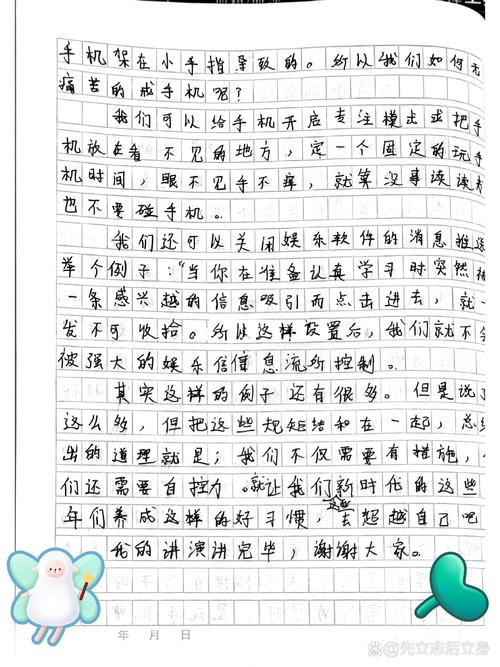 手机架在小手指导致的。所以我们如何无
痛苦的戒手机呢？
我们可以给手机开启专注模式或把手
机放在看不见的地方，定一个固定的玩手
机时间，眼不见手不痒，就算没事读读
也不要碰手机。
我们还可以关闭娱乐软件的消息推送
举个例子："当你在准备认真学习时突然
一条感兴趣的信息吸引而点击进去，就一
发不可收拾。所以这样设置后，我们就不会
被强大的娱乐信信息流所控制。
其实这样的例子还有很多。但是说了
这么多，但把这些起短结和在一起，总
出的道理就是；我们不仅需要有措施，
们还需要自控力。就让我们新时代的这些
年们养成这样的好习惯，去超越自己吧
我的讲演讲完毕，谢谢大家。
年 月 日
@先立志后立身